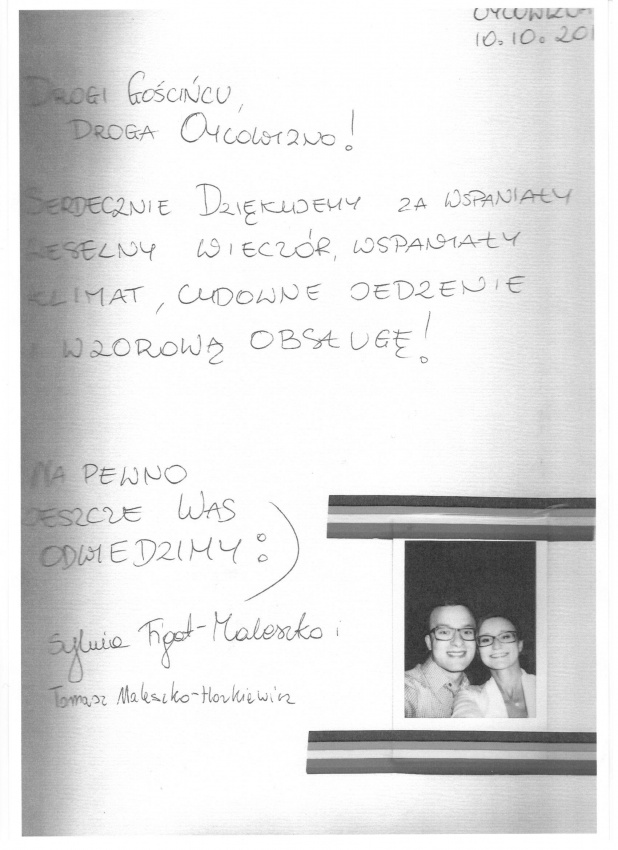 10.10.201
DROGI GOŚCIŃCU,
DROGA OYCOWIZNO!
SERDECZNIE DZIĘKUJEMY ZA WSPANIAŁY
WESELNY WIECZÓR, WSPANIAŁY
KLIMAT, CUDOWNE JEDZENIE
I WZOROWĄ OBSŁUGĘ!
NA PEWNO
JESZCZE WAS
ODWIEDZIMY :)
Sylwia Figat-Maleszko i
Tomasz Maleszko-Horkiewicz